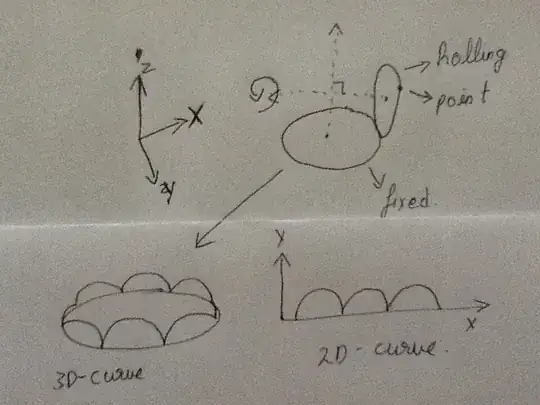 z
X
y
holling
point
fixed.
Y
X
3D-curve
2D-curve.